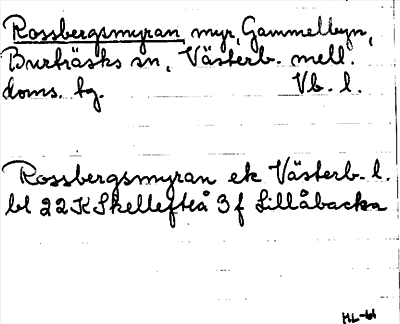 Rossbergsmyran, myr, Gammelbyn,
Burträsks sn, Västerb. mell.
doms. tg. Vb. l.
Rossbergsmyran ek Västerb. l.
bl 22K Skellefteå 3f Lillåbacka
ML-61